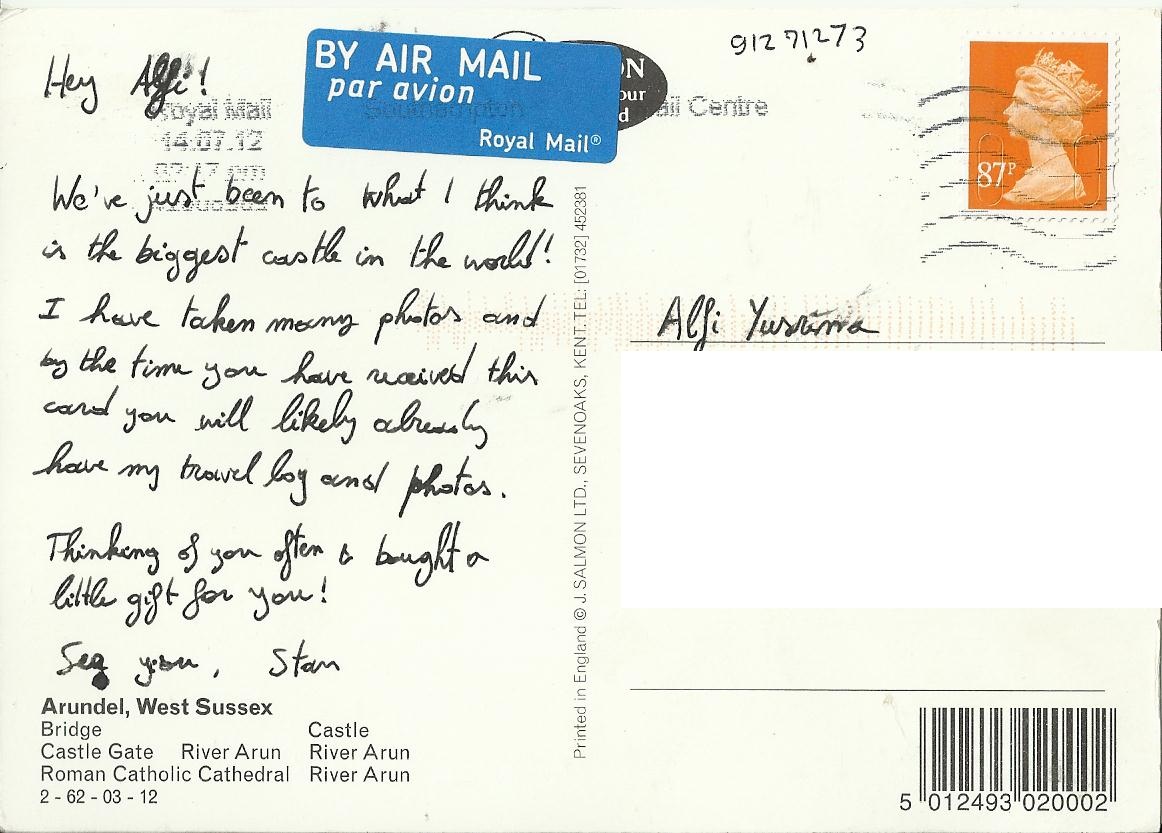 Hey Alfi!
BY AIR MAIL
par avion
Royal Mail®
Royal Mail
14.07.12
07:17 pm
ail Centre
ON
our
d
91271273
87P
We've just been to what I think
is the biggest castle in the world!
I have taken many photos and
by the time you have received this
card you will likely already
have my travel log and photos.
Thinking of you often & bought a
little gift for you!
See you, Stan
Arundel, West Sussex
Bridge Castle
Castle Gate River Arun River Arun
Roman Catholic Cathedral River Arun
2 - 62 - 03 - 12
Printed in England © J. SALMON LTD., SEVENOAKS, KENT. TEL: [01732] 452381
Alfi
5 012493 020002